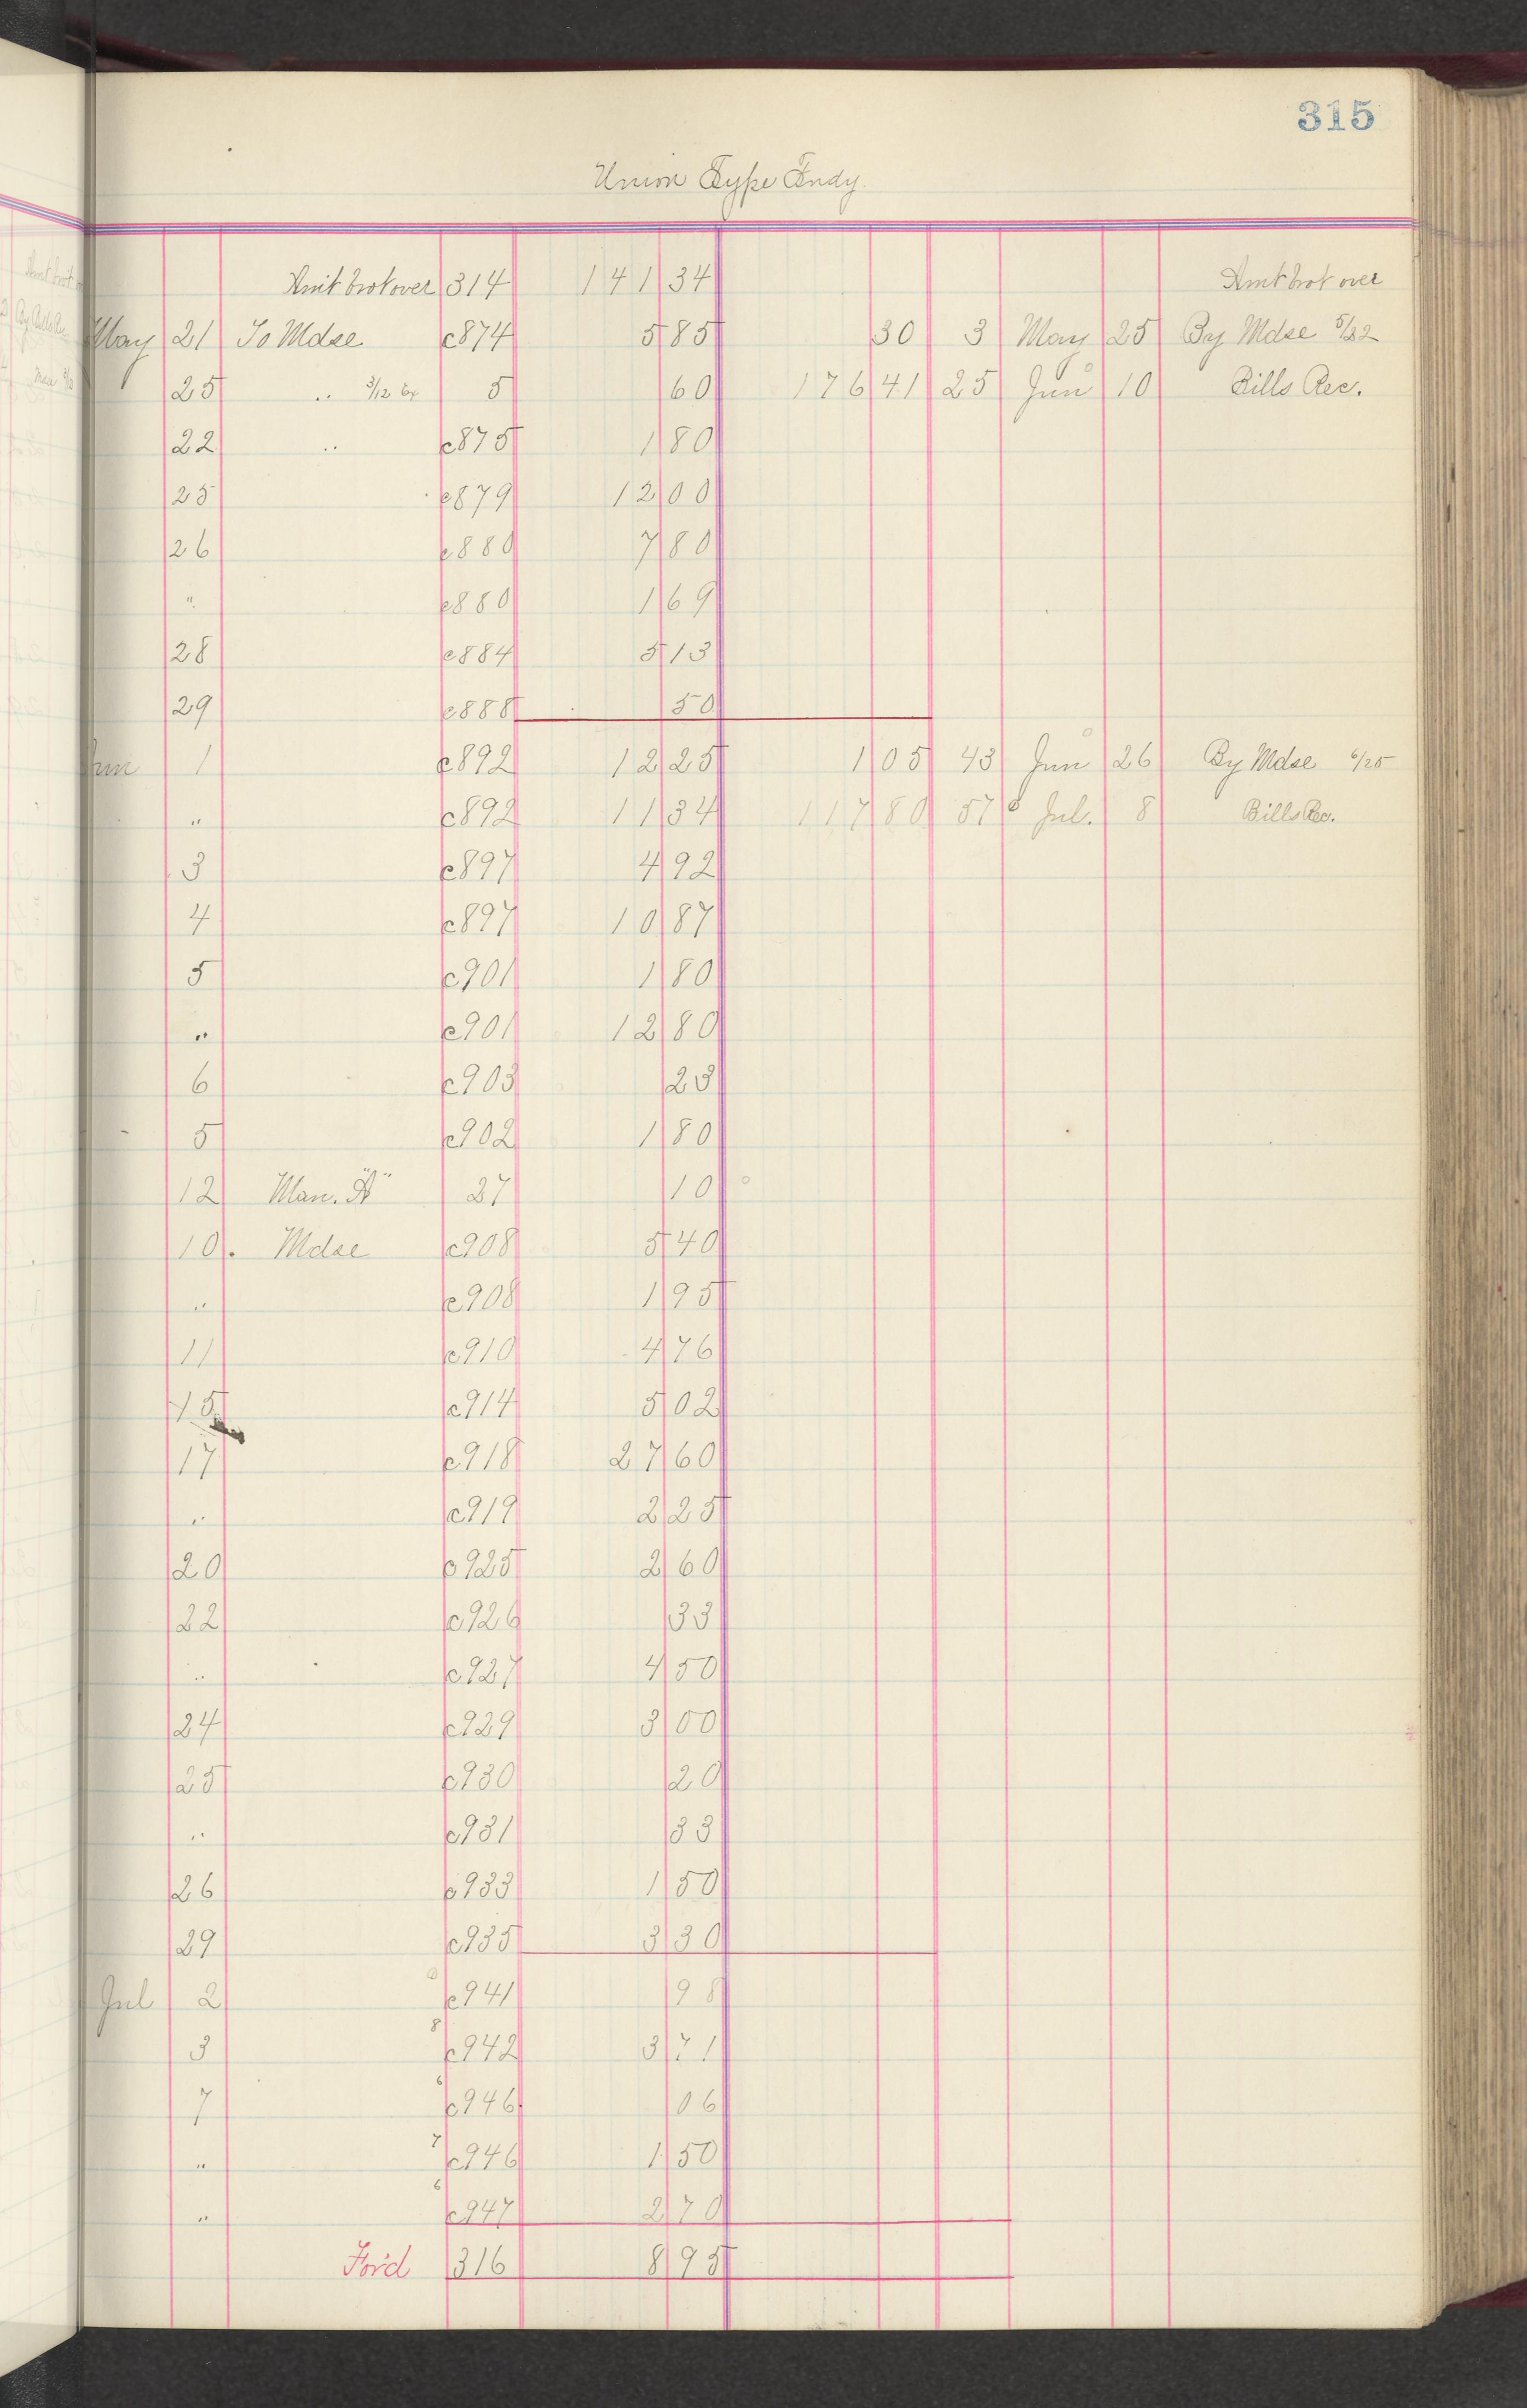 315
Union Type Fndy.
Amt brot over 314 141 34 Amt brot over
May 21 To Mdse c874 5 85 30 3 May 25 By Mdse 5/22
25 " 3/12 Ex. 5 60 176 41 25 Jun 10 Bills Rec.
22 " c875 1 80
25 c879 12 00
26 c880 7 80
" c880 1 69
28 c884 5 13
29 c888 50
Jun 1 c892 12 25 1 05 43 Jun 26 By Mdse 6/25
" c892 11 34 117 80 57 Jul. 8 Bills Rec.
3 c897 4 92
4 c897 10 87
5 c901 1 80
" c901 12 80
6 c903 23
5 c902 1 80
12 Man. "A" 27 10
10. Mdse c908 5 40
" c908 1 95
11 c910 4 76
15 c914 5 02
17 c918 27 60
" c919 2 25
20 c925 2 60
22 c926 33
" c927 4 50
24 c929 3 00
25 c930 20
" c931 33
26 c933 1 50
29 c935 3 30
Jul 2 c941 98
3 8 c942 3 71
7 6 c946 06
" 7 c946 1 50
" 6 c947 2 70
For'd 316 8 95